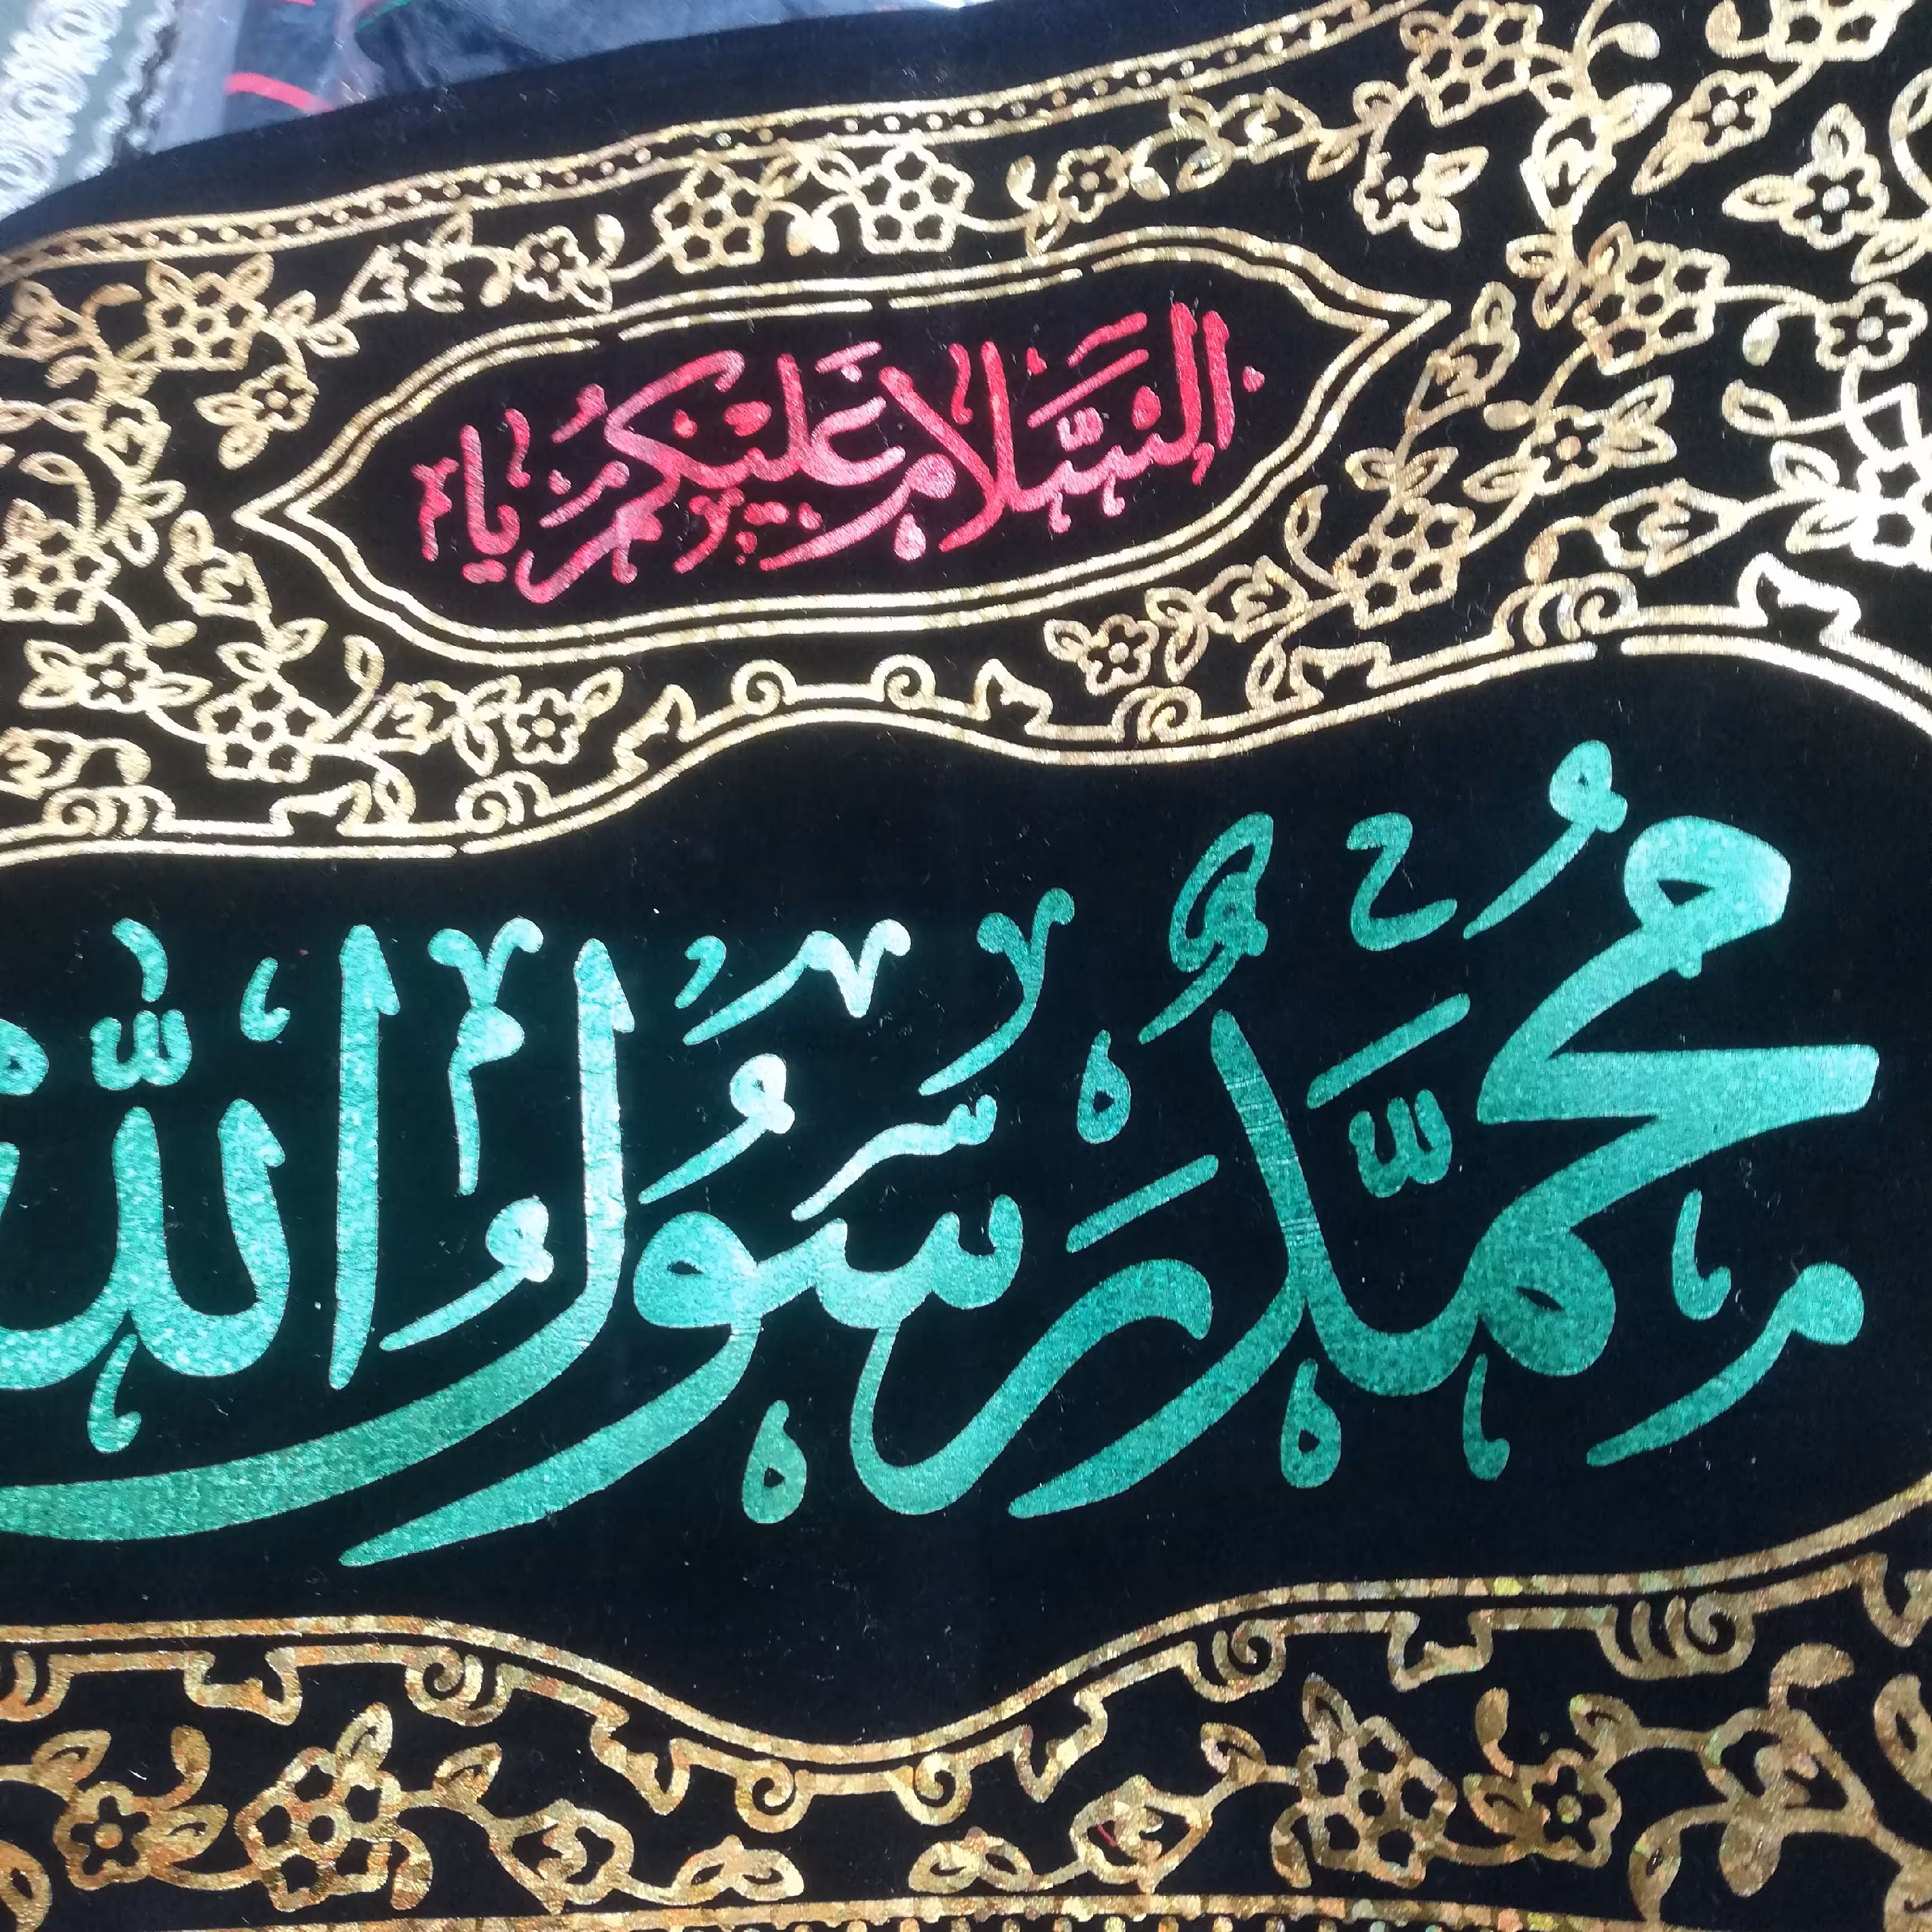 السَّلامُ عَلَيْكُمْ يَا
مُحَمَّد رَسُولُ الله